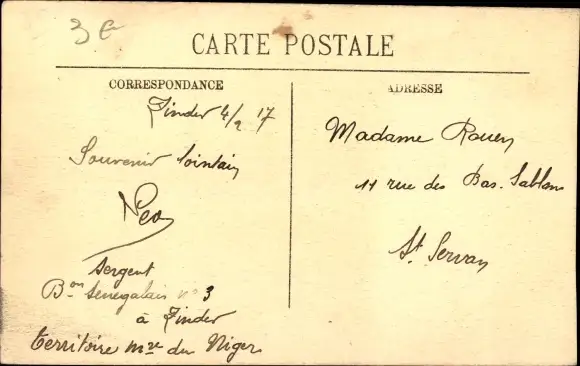 3 e
CARTE POSTALE
CORRESPONDANCE
Zinder 4/2 17
Souvenir lointain
Sergent
Bon Sénégalais n° 3
à Zinder
territoire mre du Niger
ADRESSE
Madame Rouen
11 rue des Bas. Sablons
St. Servan